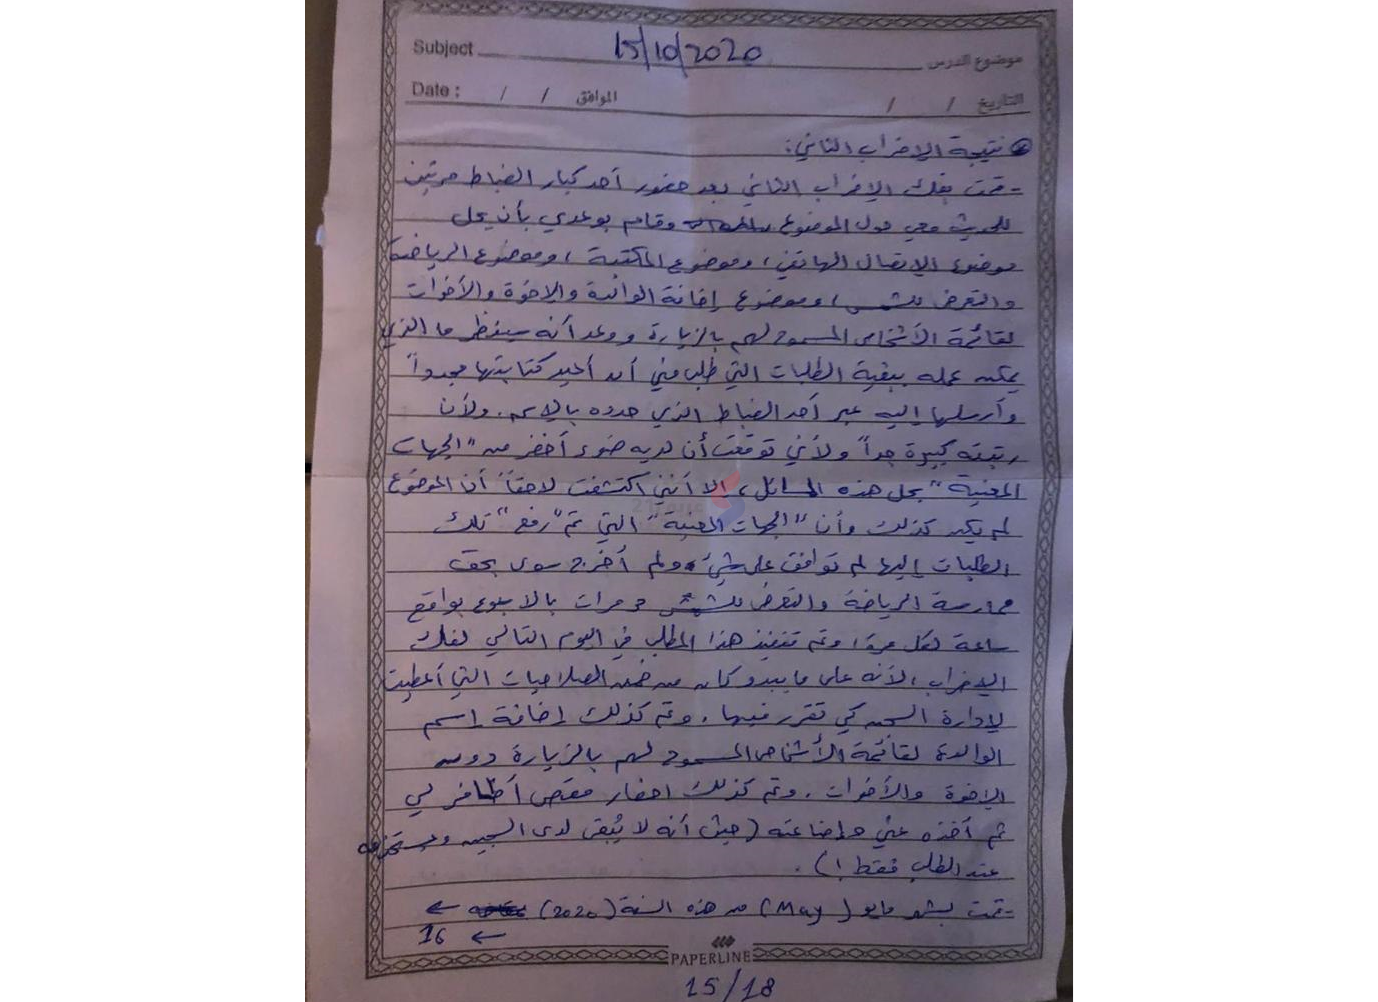 Subject 15/10/2020 موضوع الدرس
Date : / / الموافق / / التاريخ
نتيجة الإضراب الثاني:
- قمت بفك الإضراب الثاني بعد حضور أحد كبار الضباط مرتين
للحديث معي حول الموضوع وقام بوعدي بأن يحل
موضوع الإتصال الهاتفي، وموضوع المكتبة، وموضوع الرياضة
والتعرض للشمس، وموضوع إضافة الوالدة والاخوة والأخوات
لقائمة الأشخاص المسموح لهم بالزيارة ووعد أنه سينظر ما الذي
يمكن عمله ببقية الطلبات التي طلب مني أن أعيد كتابتها مجدداً
وأرسلها إليه عبر أحد الضباط الذي حدده بالاسم. ولأن
رتبته كبيرة جداً ولأني توقعت أن لديه ضوء أخضر من "الجهات
المعنية" بحل هذه المسائل، إلا أنني اكتشفت لاحقاً أن الموضوع
لم يكن كذلك وأن "الجهات المعنية" التي تم "رفع" تلك
الطلبات إليها لم توافق على شيء ولم أخرج سوى بحق
ممارسة الرياضة والتعرض للشمس مرات بالاسبوع بواقع
ساعة لكل مرة، وتم تنفيذ هذا المطلب في اليوم التالي لفك
الإضراب لأنه على ما يبدو كان من ضمن الصلاحيات التي أعطيت
لإدارة السجن كي تقرر فيها. وتم كذلك إضافة اسم
الوالدة لقائمة الأشخاص المسموح لهم بالزيارة دون
الإخوة والأخوات. وتم كذلك احضار مقص أظافر لي
ثم أخذه عني وإضاعته (حيث أنه لا يُبقى لدى السجين
عند الطلب فقط!).
- قمت بشهر مايو (May) من هذه السنة (2020) ←
← 16
PAPERLINE
15/18